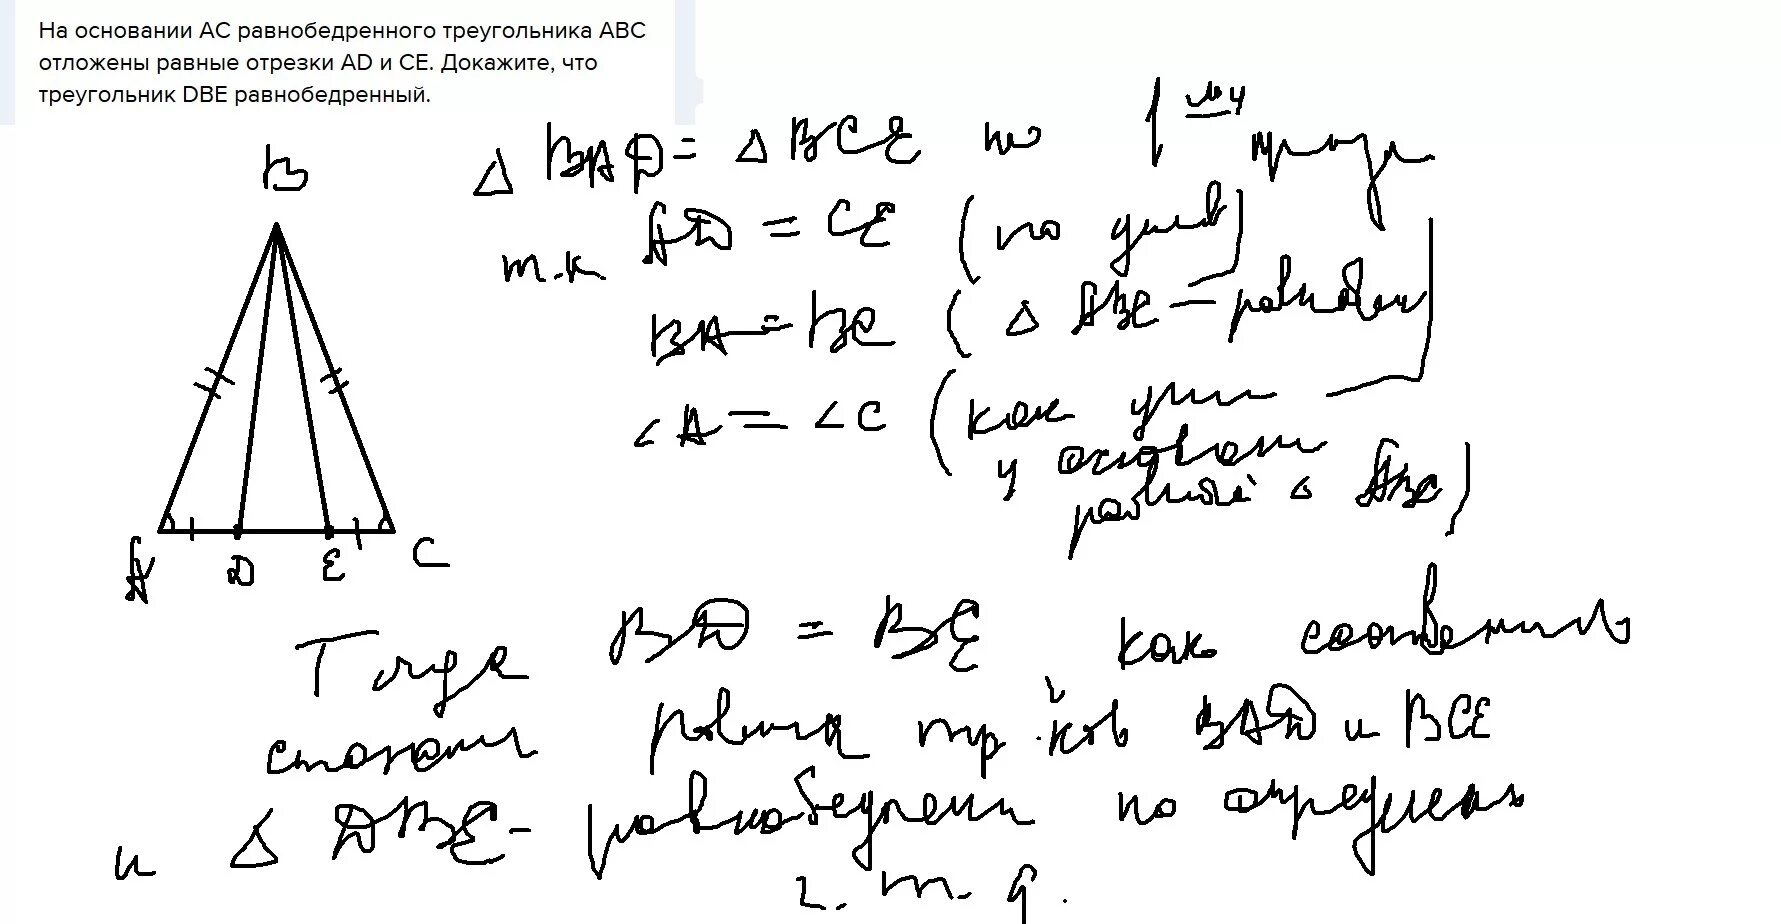 На основании AC равнобедренного треугольника ABC
отложены равные отрезки AD и CE. Докажите, что
треугольник DBE равнобедренный.
№4
△ BAD = △ BCE по 1
т.к AD = CE (по
BA = BC ( △ ABC — равнобед
∠A = ∠C ( как угл
у основан
△ ABC)
B
A D E C
Тогда BD = BE как соответств
сторон тр-ков BAD и BCE
и △ DBE - равнобедрен по определен
ч.т.д.